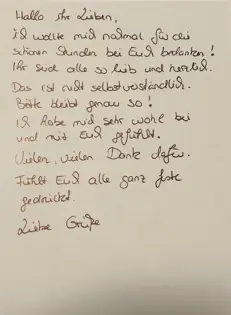 Hallo ihr Lieben,
ich wollte mich nochmal für die
schönen Stunden bei Euch bedanken!
Ihr seid alle so lieb und herzlich.
Das ist nicht selbstverständlich.
Bitte bleibt genau so!
Ich habe mich sehr wohl bei
und mit Euch gefühlt.
Vielen, vielen Dank dafür.
Fühlt Euch alle ganz feste
gedrückt.
Liebe Grüße